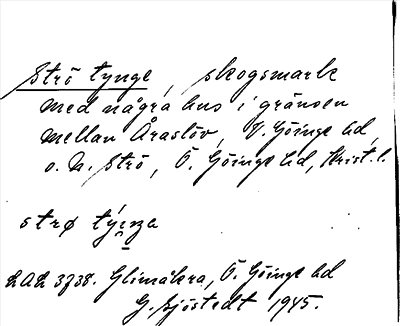 Strö tynge, skogsmark
med några hus i gränsen
mellan Åraslöv, V. Göinge hd,
o. N. Strö, Ö. Göinge hd, Krist. l.
strø týŋa
LAL 3738. Glimåkra, Ö. Göinge hd
G. Sjöstedt 1945.